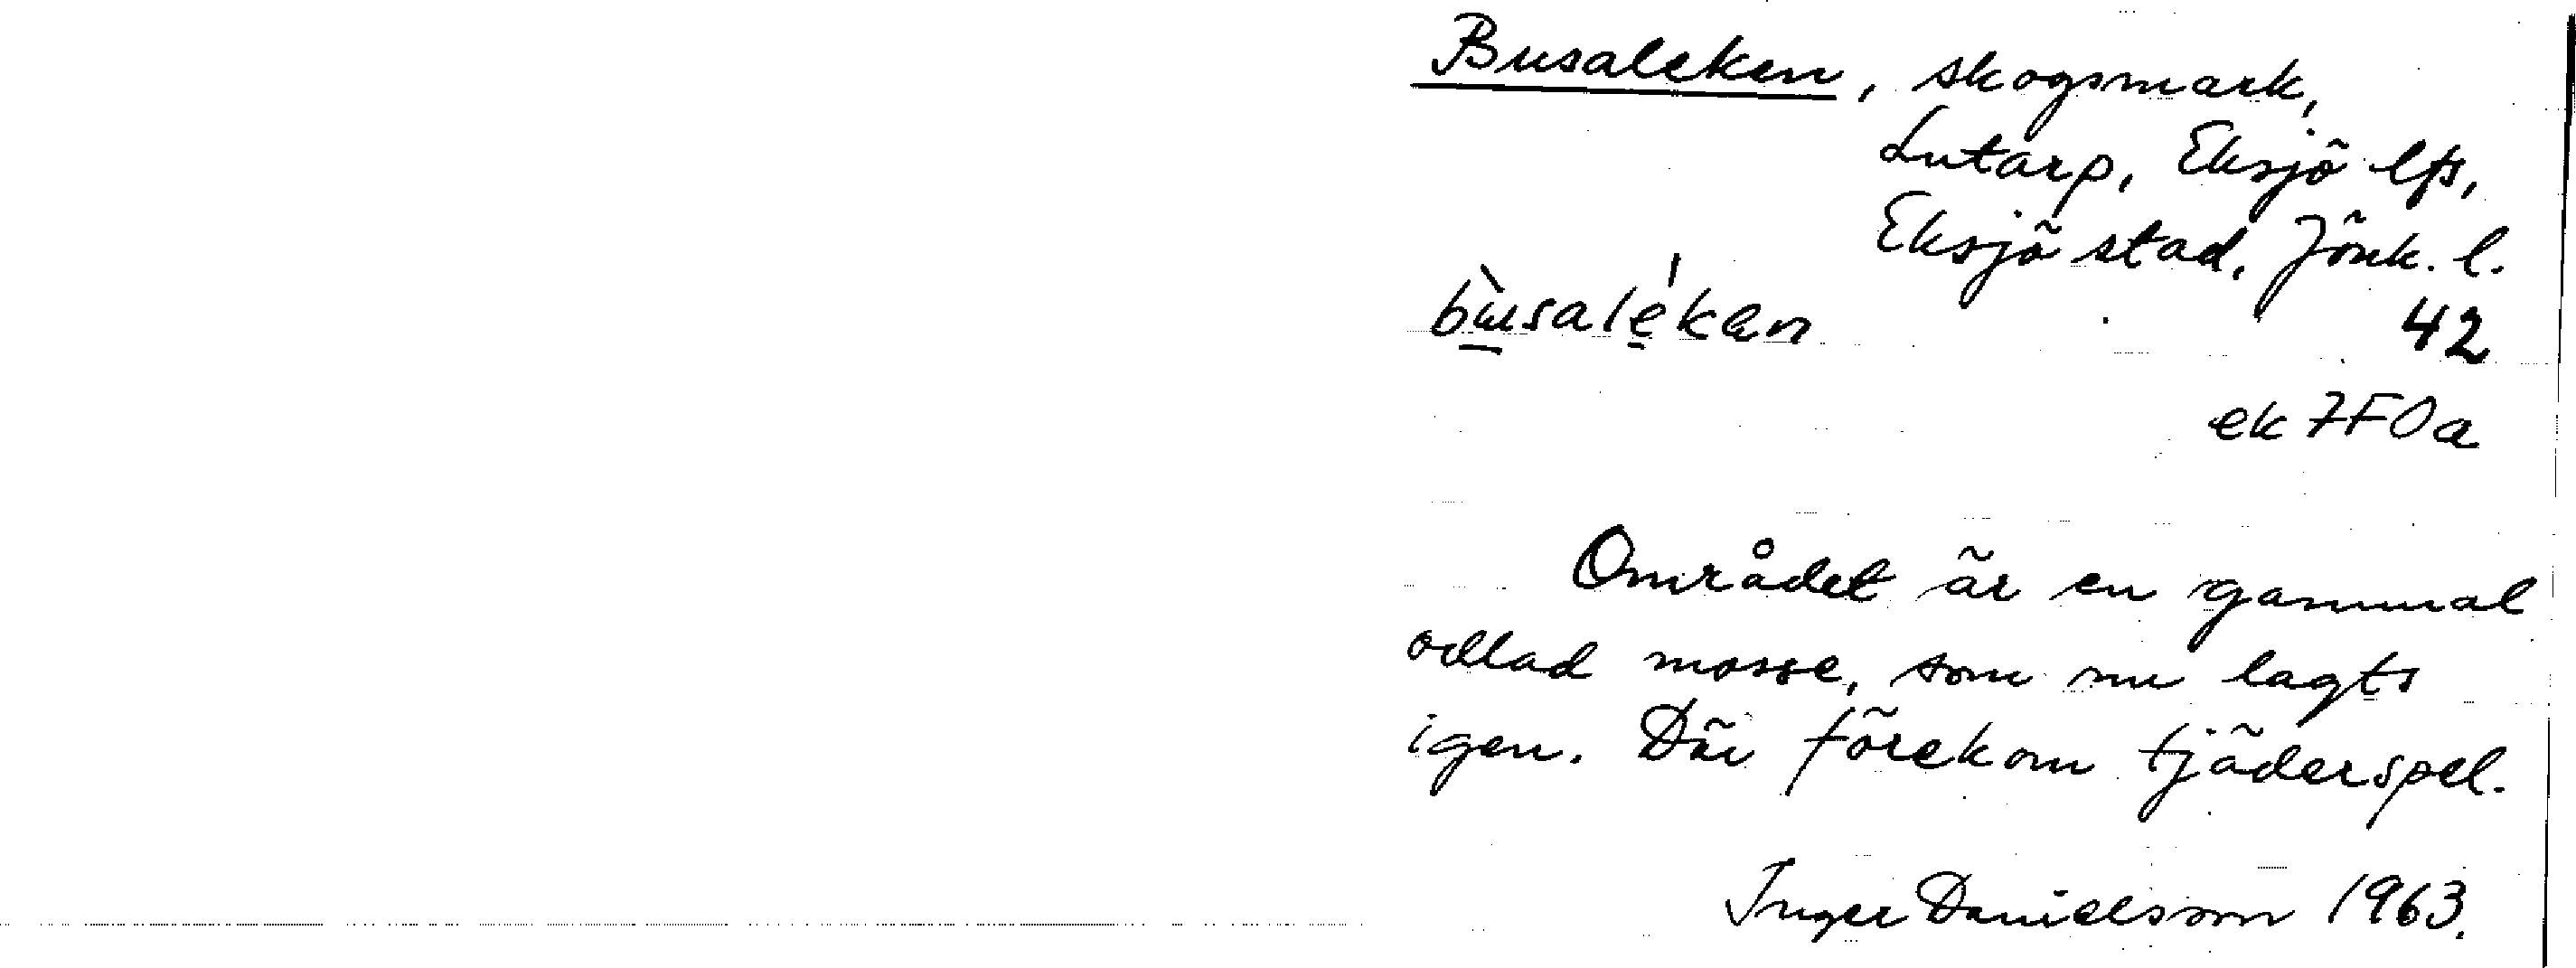 Busaleken, skogsmark,
Lutarp, Eksjö lfs,
Eksjö stad, Jönk. l.
bùsalékan
42
ek 7F0a
Området är en gammal
odlad mosse, som nu lagts
igen. Där förekom tjäderspel.
Inger Danielsson 1963.